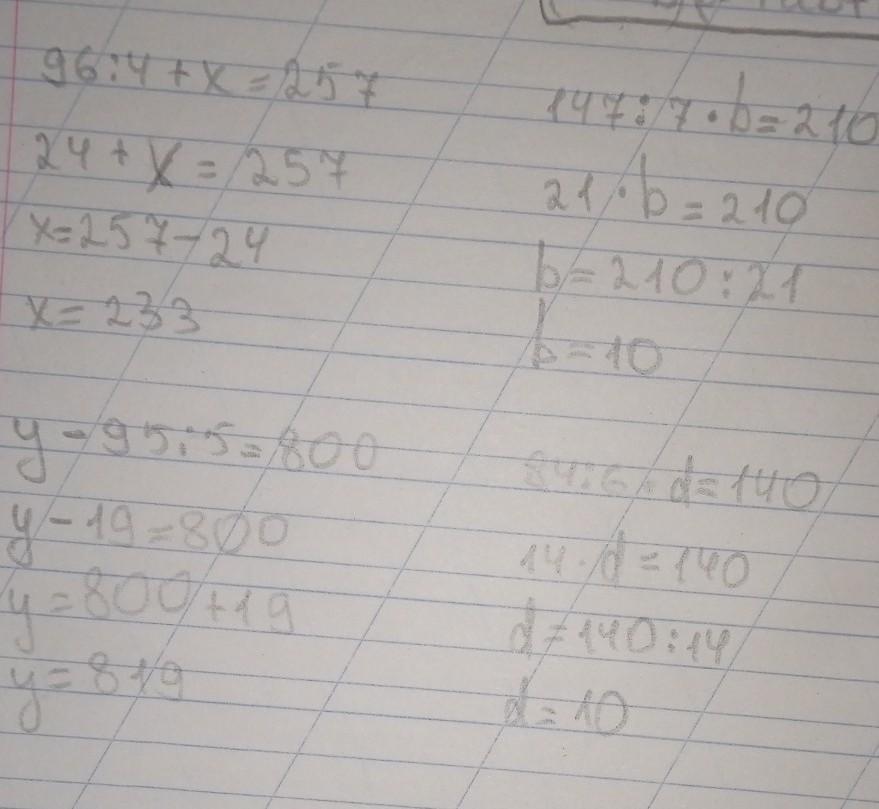 96:4+x=257
24+x=257
x=257-24
x=233
y-95:5=800
y-19=800
y=800+19
y=819
147:7·b=210
21·b=210
b=210:21
b=10
84:6·d=140
14·d=140
d=140:14
d=10